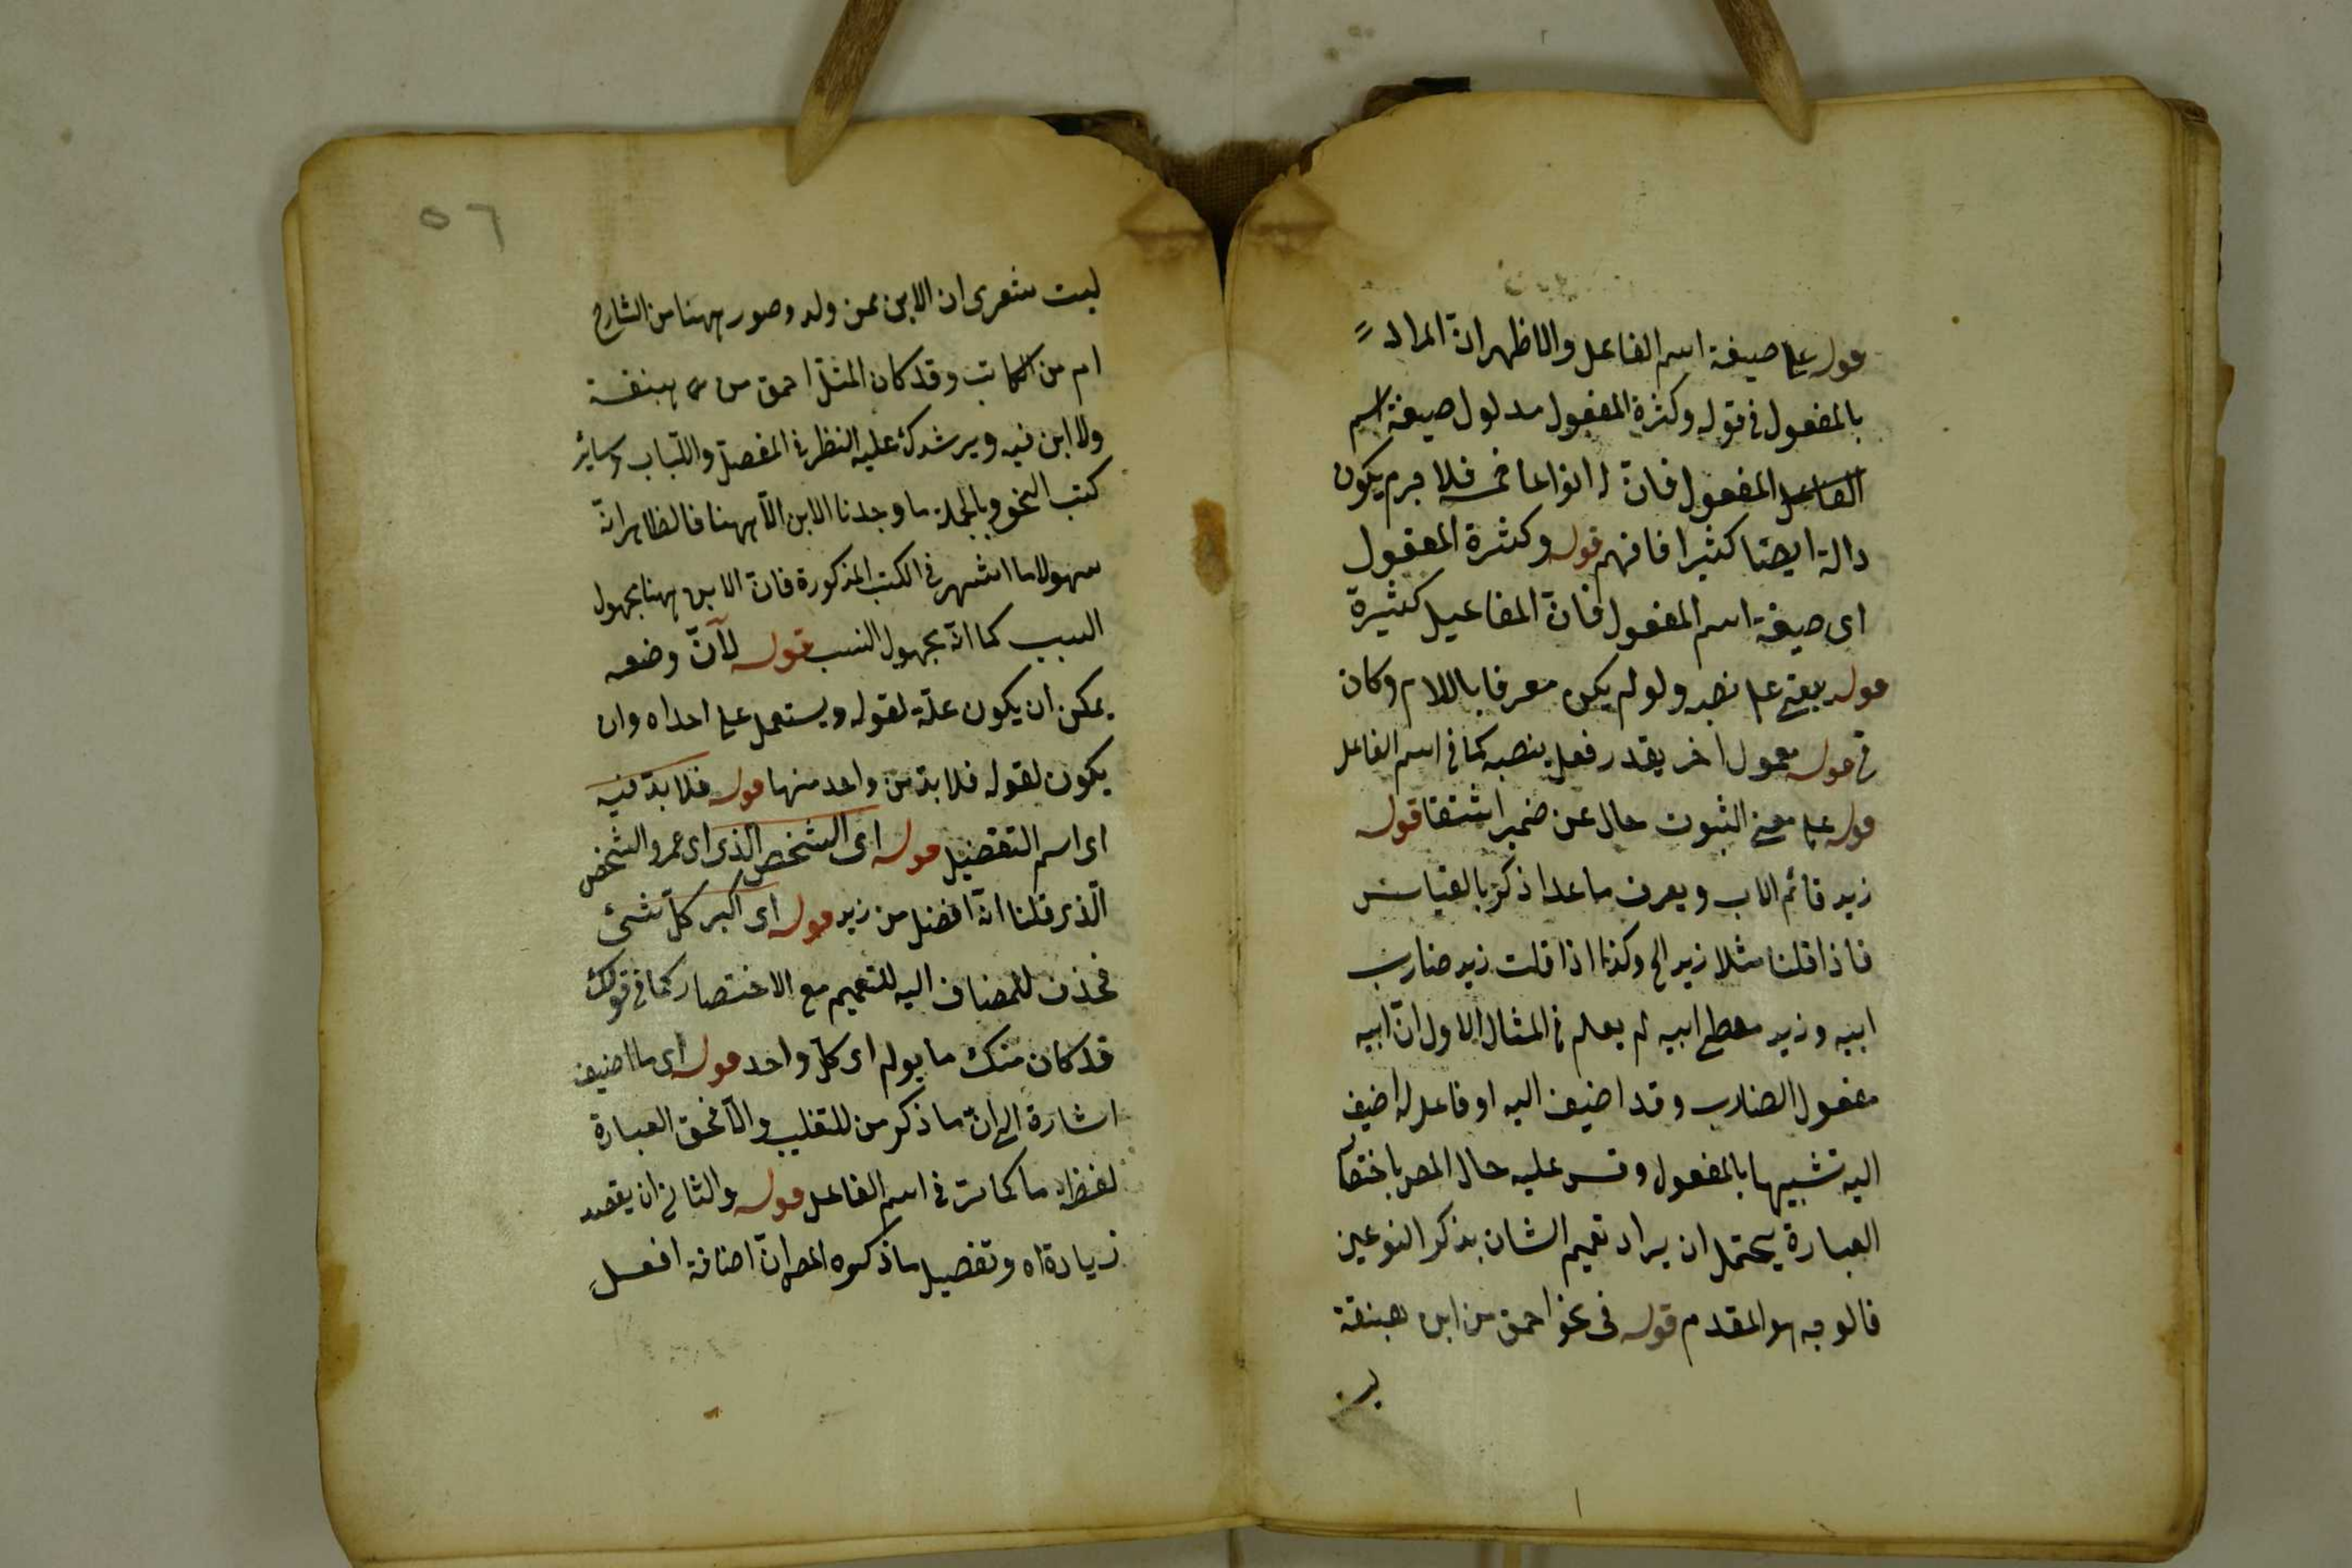 قوله على صيغة اسم الفاعل والاظهر ان المراد
بالمفعول في قوله وكثرة المفعول مدلول صيغة اسم
الفاعل المفعول فان له انواعا خمسة فلا جرم يكون
دالة ايضا كثيرا فافهم قوله وكثرة المفعول
اى صيغة اسم المفعول فانّ المفاعيل كثيرة
قوله بقي على نصبه ولو لم يكن معرفا باللام وكان
في قوله معمول اخر يقدر فعل ينصبه كما في اسم الفاعل
قوله على معنى الثبوت حال عن ضمير اشتقا قوله
زيد قائم الاب ويعرف ما عدا ذكر بالقياس
فاذا قلنا مثلا زيد الح وكذا اذا قلت زيد ضارب
ابيه وزيد معطى ابيه لم يعلم في المثال الاول انّ ابيه
مفعول الضارب وقد اضيف اليه او فاعل له اضيف
اليه تشبيها بالمفعول وقس عليه حال المص باختصار
العبارة يحتمل ان يراد تعميم الشان بذكر النوعين
فالوجه هو المقدم قوله في نحو احمق من ابن هبنقة
ليت
٥٦
ليت شعرى ان الابن ممن ولد وصور ههنا من الشارح
ام من الكاتب وقد كان المثل احمق من هبنقة
ولا ابن فيه ويرشدك عليه النظر في المفصل واللباب وسائر
كتب النحو وبالجملة ما وجدنا الابن الّا ههنا فالظاهر انّه
سهو لاما اشتهر في الكتب المذكورة فانّ الابن ههنا مجهول
السبب كما انّه مجهول النسب قوله لانّ وضعه
يمكن ان يكون علّة لقوله ويستعمل على احداه وان
يكون لقوله فلا بدّ من واحد منها قوله فلا بدّ فيه
اى اسم التفضيل قوله اى الشخص الذى اى عمرو الشخص
الّذى قلنا انّه افضل من زيد قوله اى اكبر كلّ شئ
فحذف للمضاف اليه للتعميم مع الاختصار كما في قولك
قد كان منك ما يولم اى كلّ واحد قوله اى ما اضيف
اشارة الى انّ ما ذكر من للتغليب والّا فحق العبارة
لفظه ما كما مرّ في اسم الفاعل قوله والثاني ان يقصد
زيادة اه وتفصيل ما ذكره المص انّ اضافة افعل